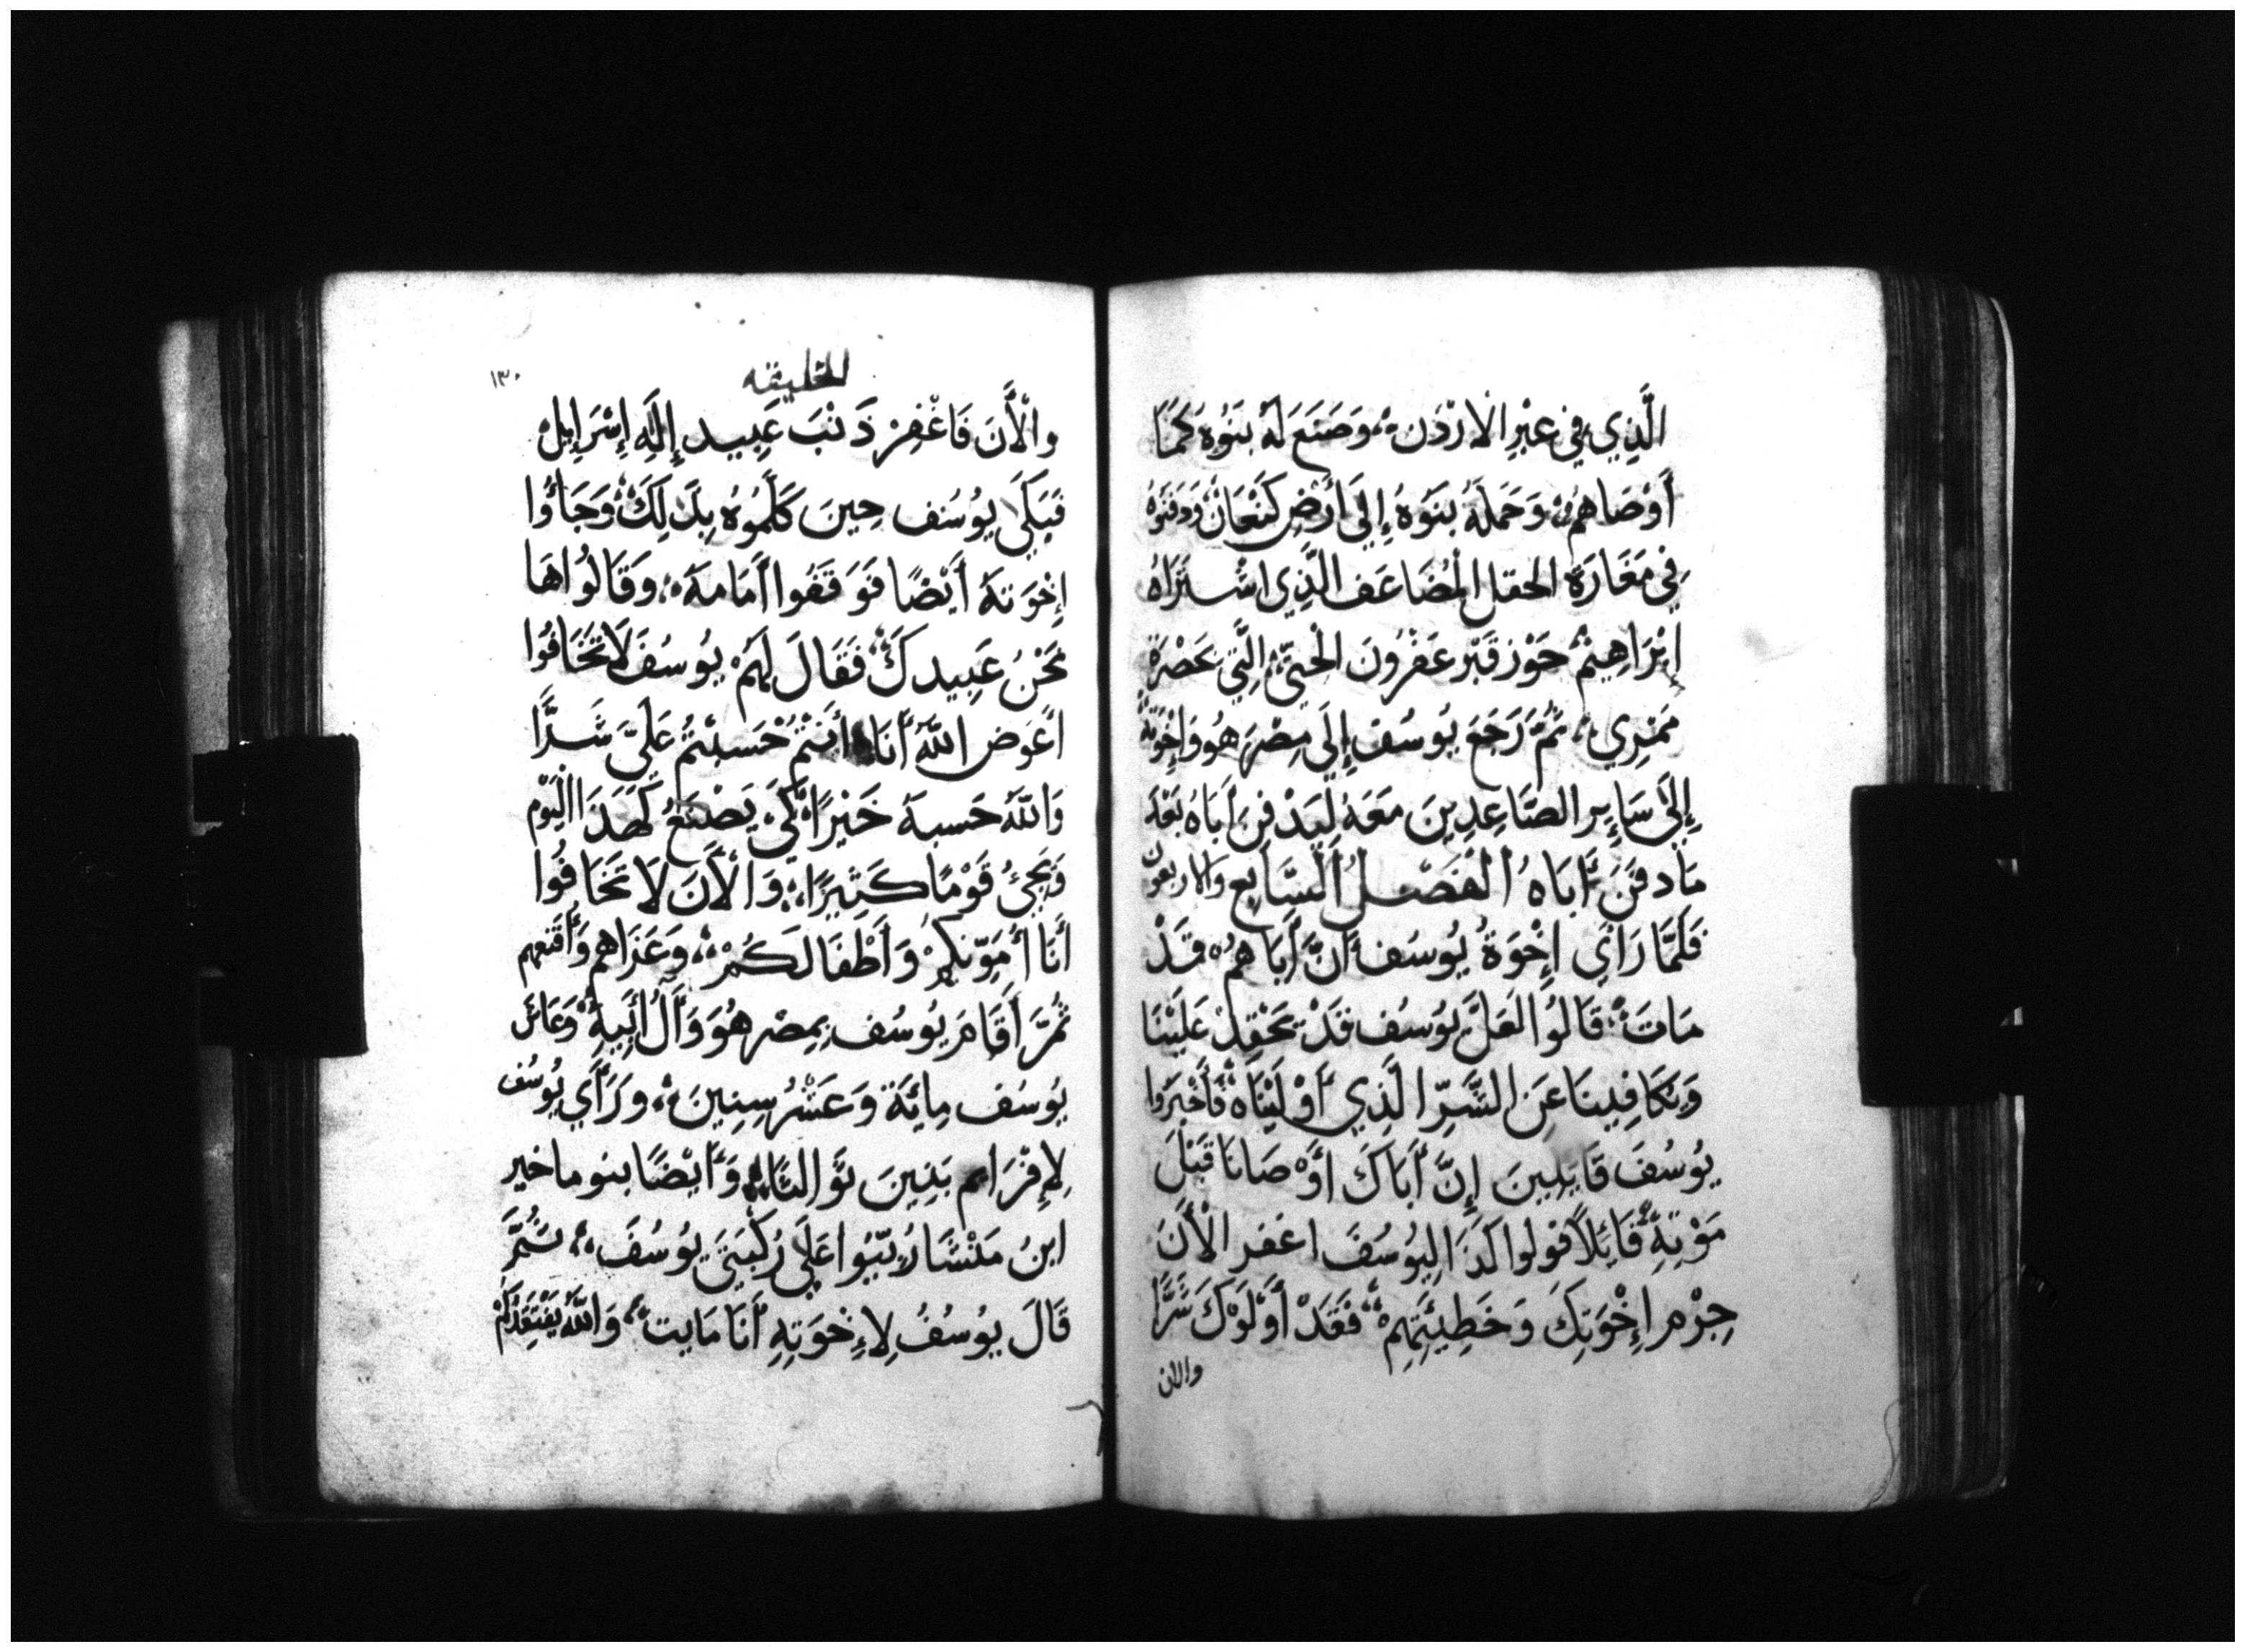 الَّذِي فِي عِبْرِ الارْدَن وَصَنَعَ لَهُ بَنُوهُ كَمَا
أَوْصَاهُمْ وَحَمَلَهُ بَنُوهُ إِلَى أَرْضِ كَنْعَانَ وَدَفَنُوهُ
فِي مَغَارَةِ الحقل المُضَاعَف الَّذِي اشْتَرَاهُ
إِبْرَاهِيمُ حَوْز قَبْر عَفْرُونَ الْحِتِّي الَّتِي بحَضْرَة
مَمْرِي ثُمَّ رَجَعَ يُوسُف إِلَى مِصْرَ هُو وَإِخْوَتُهُ
إِلَى سَايِر الصَّاعِدِينَ مَعَهُ لِيَدْفِنَ أَبَاهُ بَعْدَ
مَا دفَنَ أَبَاهُ الْفَصْلُ السَّابِع وَالاربعون
فَلَمَّا رَاَي إِخْوَةُ يُوسُف أَنَّ أَبَاهُمْ قَدْ
مَاتَ قَالُوا لَعَلَّ يُوسُف قَدْ يَحْقِدْ عَلَيْنَا
وَيُكَافِينَا عَنِ الشَّرِّ الَّذِي أَوْلَيْنَاهُ فَأَخْبَرُوا
يُوسُفَ قَايِلِينَ إِنَّ أَبَاكَ أَوْصَانَا قَبْلَ
مَوْتِهِ قَائِلاً قولوا كَذَا لِيُوسُفَ اغفر الْأَنَ
جِرْم إِخْوَتِكَ وَخَطِيئَتِهِمْ فَقَدْ أَوْلَوْكَ شَرًّا
والان
الخليقه
١٣٠
والْأَنَ فَاغْفِرْ ذَنْبَ عَبِيد إِلَهِ إِسْرَايِلْ
فَبَكَى يُوسُف حِينَ كَلَّمُوهُ بِذَلِكَ وَجَاؤُا
إِخْوَتهُ أَيْضًا فَوَقَفُوا أَمَامهُ وَقَالُوا هَا
نَحْنُ عَبِيدكَ فَقَالَ لهُمْ يُوسُفَ لَا تَخَافُوا
أَعَوَض اللَّهِ أَنَا أَنْتُمْ حَسبْتُمْ عَلَيَّ شَرًّا
وَاللَّهُ حَسبهُ خَيْرًا كَيْ يَصْنَعُ كَهَذَا الْيَوْم
وَيَجِئُ قَوْمًا كَثِيرًا وَالْأَنَ لَا تَخَافُوا
أَنَا أُمَوِّنكمْ وَأَطْفَالَكُمْ وَعَزَاهم وَأَقْنَعهم
ثُمَّ أَقَامَ يُوسُف بِمِصْر هُوَ وَأَلُ أَبِيهِ وَعَاشَ
يُوسُف مِائَة وَعَشْرُ سِنِينَ وَرَأَي يُوسُف
لِإِفْرَام بَنِينَ تَوَالتًا وَأَيْضًا بنو ماخير
ابنُ مَنْشَا رُبّيُوا عَلَى رُكْبَتَيْ يُوسُفَ ثُمَّ
قَالَ يُوسُفُ لِإِخْوَتِهِ أَنَا مَايت وَاللَّهُ يَفْتَقِدَكُمْ